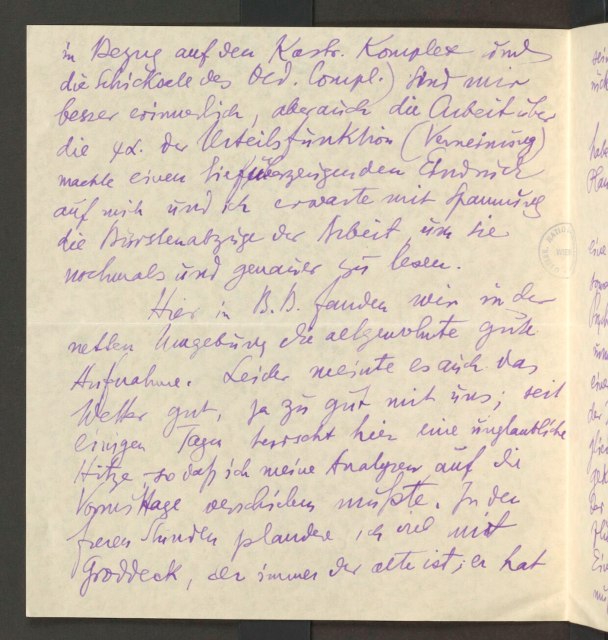 in Bezug auf den Kastr. Komplex und
die Schicksale des Oed. Compl.) sind mir
besser erinnerlich, aber auch die Arbeit über
die ψα. der Urteilsfunktion (Verneinung)
machte einen tief überzeugenden Eindruck
auf mich und ich erwarte mit Spannung
die Bürstenabzüge der Arbeit, um sie
nochmals und genauer zu lesen.
Hier in B.B. fanden wir in der
netten Umgebung die altgewohnte gute
Aufnahme. Leider meinte es auch das
Wetter gut, ja zu gut mit uns; seit
einigen Tagen herrscht hier eine unglaubliche
Hitze, so daß ich meine Analysen auf die
Vormittage verschieben mußte. In den
freien Stunden plaudere ich viel mit
Groddeck, der immer der alte ist; er hat